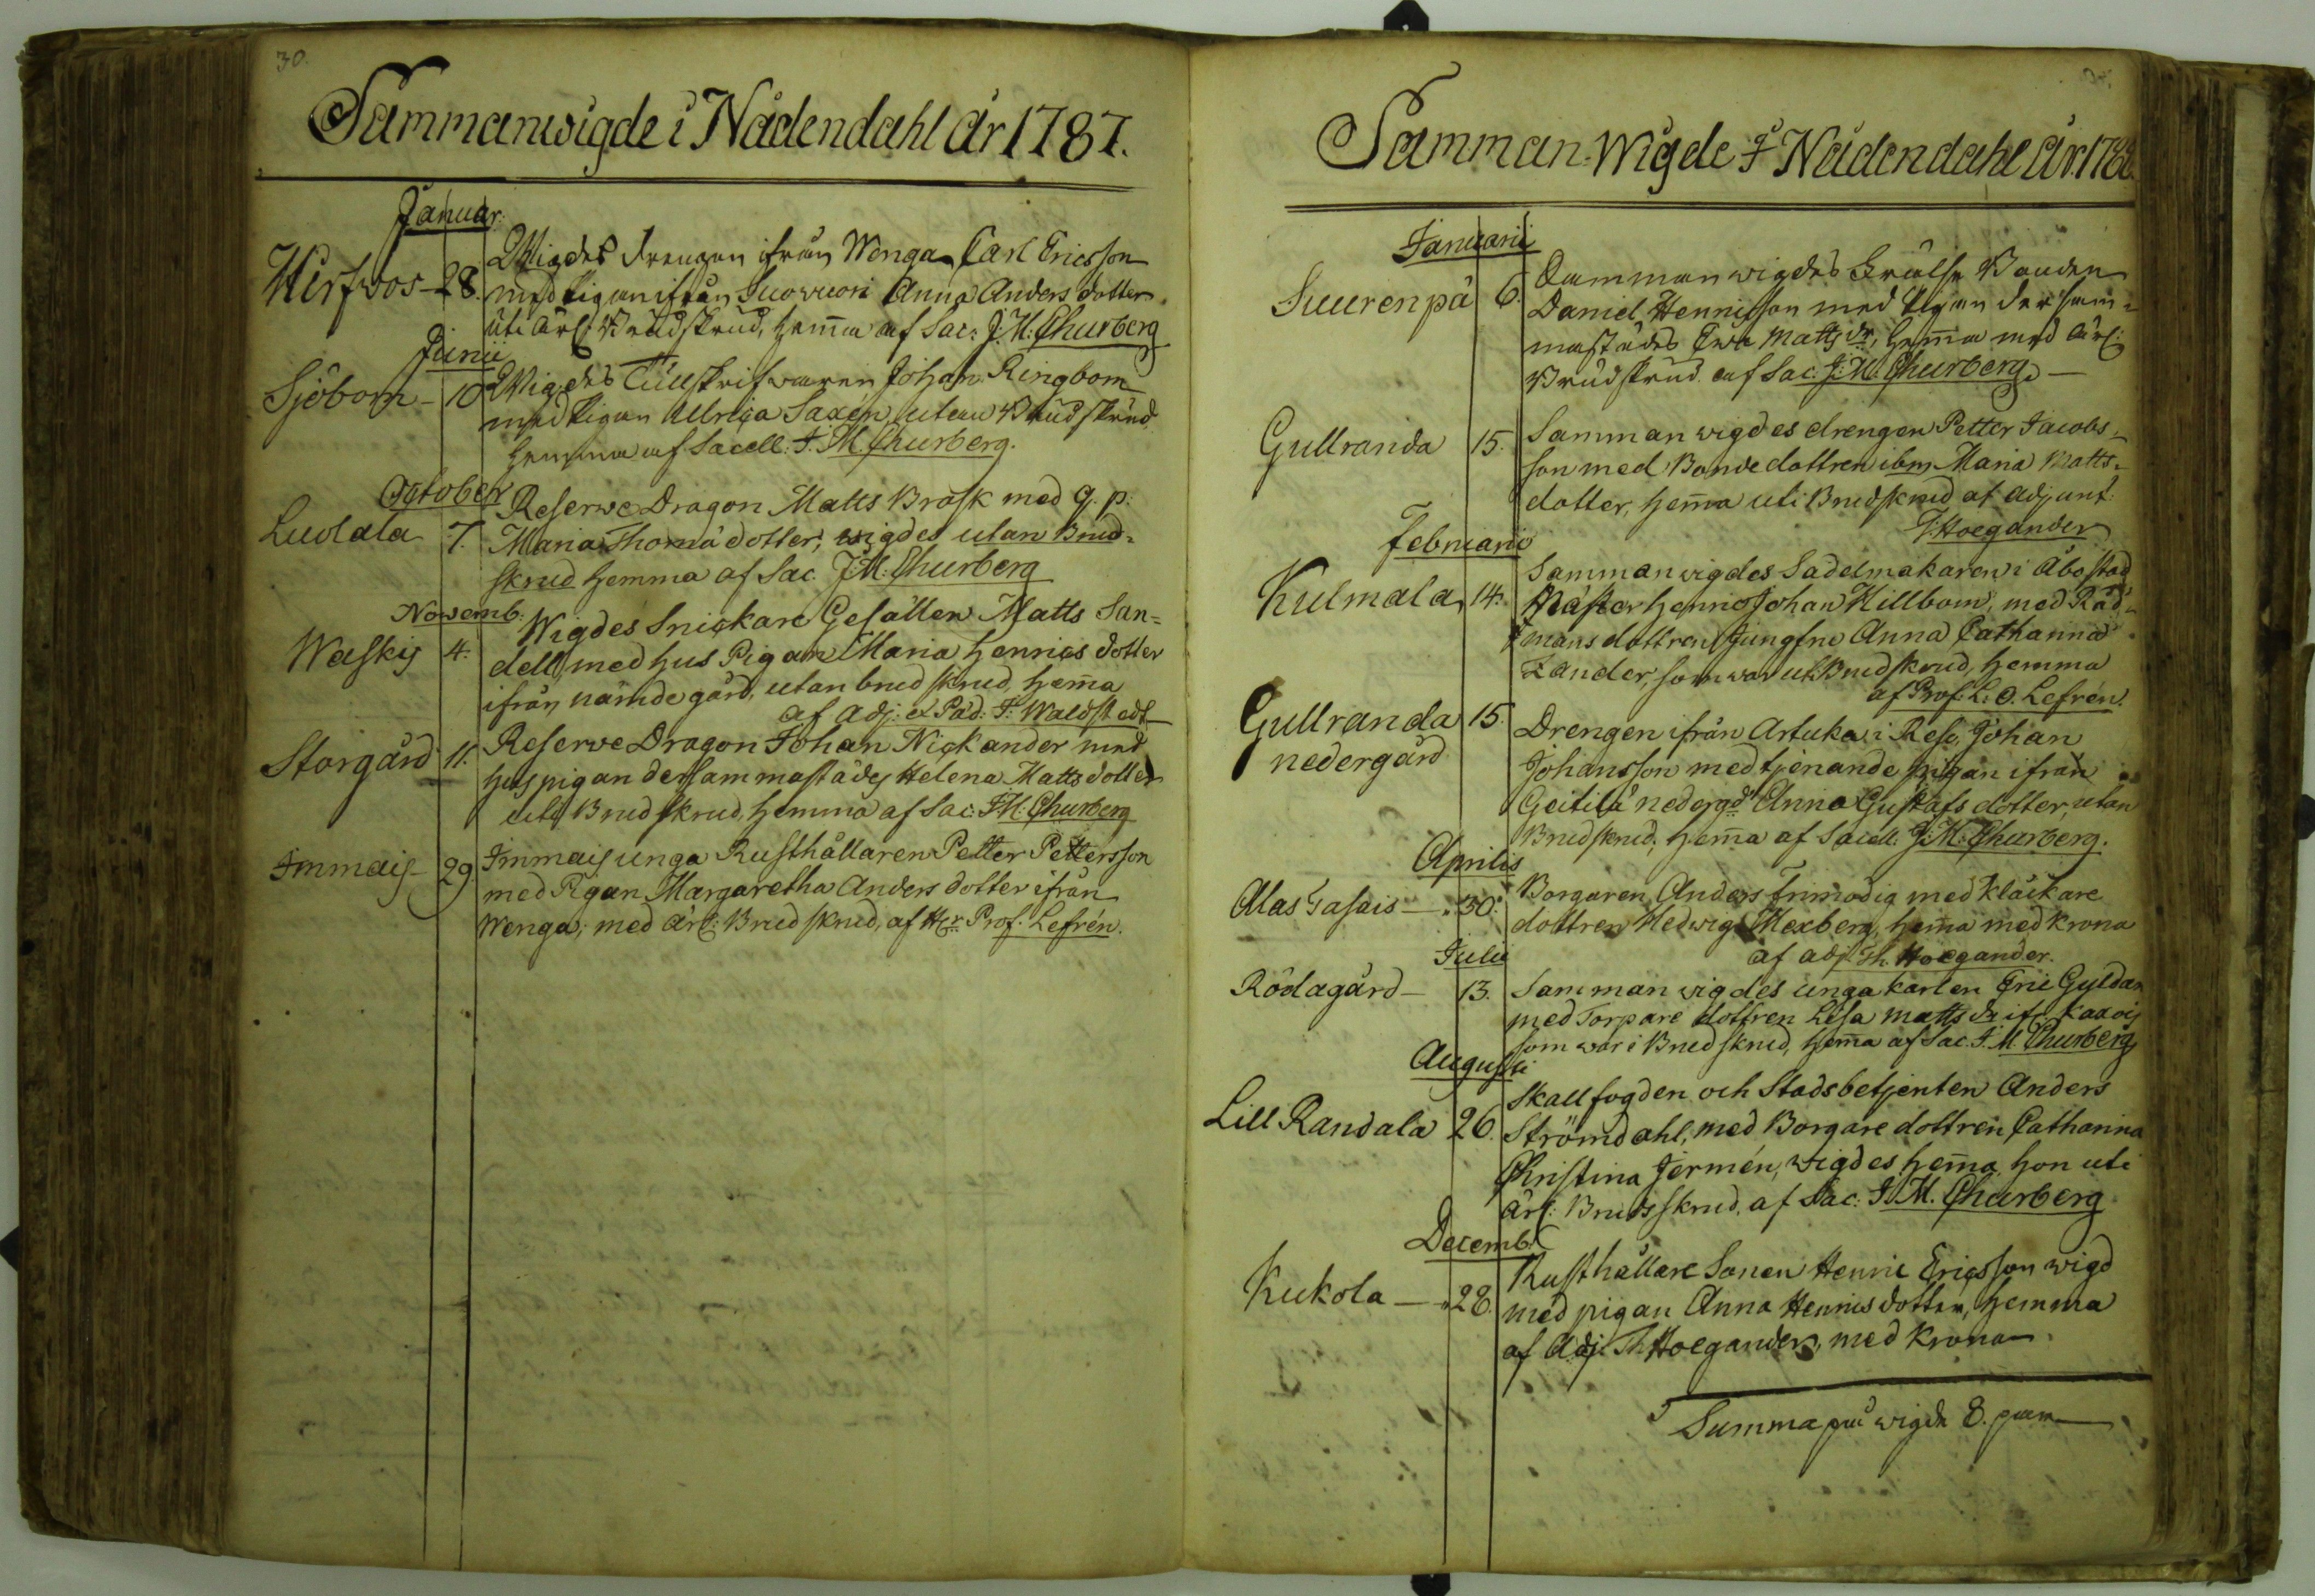 30.
Sammanwigde i Nådendahl År 1787.
Januar:
Hirfwos - 28. Wigdes drengen ifrån Wenga Carl Ericsson
med pigan ifrån Suowuori Anna Andersdotter
uti ärl: Brudskrud, hem̄a af Sac: J: M: Churberg
Junii
Sjöbom - 10 Wigdes Tullskrifwaren Johan Ringbom
med pigan Ulrica Saxén utan Brudskrud
hemma af Sacell: J. M. Churberg.
October
Luolala 7. Reserwe Dragon Matts Brask med q. p.
Maria Thomædotter, wigdes utan Brud-
skrud hemma af Sac. J: M: Churberg
Novemb:
Waskis 4. Wigdes Snickare Gesällen Matts San=
dell, med hus Pigan Maria Henricsdotter
ifrån nämde gård, utan brudskrud, hem̄a
af Adj: et Päd: J: Waldstedt
Storgård 11. Reserve Dragon Johan Nickander med
huspigan dersammastädes Helena Mattsdotter
uti Brudskrud, hemma af Sac: J: M: Churberg
Immais - 29. Immais unga Rusthållaren Petter Pettersson
med Pigan Margaretha Andersdotter ifrån
Wenga, med ärl: Brudskrud, af Hr Prof. Lefrén.
Samman-Wigde I Nådendahl År. 1788.
Januarii
Suurenpä 6. Sammanwigdes Frälse Bonden
Daniel Henrisson med Pigan dersam=
mastädes Ewa Matts dr, hem̄a med ärl:
Brudskrud af Sac. J: M: Churberg. —
Gullranda 15. Sammanwigdes drengen Petter Jacobs-
son med Bondedottren ibm Maria Matts-
dotter, hem̄a uti Brudskrud af Adjunt:
T. Hoegander
Februarii
Kulmala 14. Sammanwigdes Sadelmakaren i Åbo stad
Mäster Henric Johan Killbom, med Råd=
mansdottren Jungfru Anna Catharina
Zander, som war uti Brudskrud, hemma
af Prof. L. O. Lefrén.
Gullranda nedergård 15. Drengen ifrån Artuka i Reso, Johan
Johansson med tjenande pigan ifrån
Geitilä nedergd Anna Gustafsdotter, utan
Brudskrud, hem̄a af Sacell: J: M: Churberg.
Aprilis
Alas Tasais — 30. Borgaren Anders Frimodig med Klåckare
dottren Hedwig Mexberg, hem̄a med Krona
af adj. Th. Hoegander.
Julii
Rödagård — 13. Sammanwigdes unga karlen Eric Gyldan
med Torpare dottren Lisa Matts dr ifr. Kaxois
som war i Brudskrud, hem̄a af Sac. J. M Churberg
Augusti
Lill Randala 26. Skallfogden och Stadsbetjenten Anders
Strömdahl, med Borgare dottren Catharina
Christina Jermén, wigdes hem̄a, hon uti
ärl: Brudskrud, af Sac: J. M. Churberg
Decemb:
Kukola — 28. Rusthållare Sonen Henric Ericsson wigd
med pigan Anna Henricsdotter, hemma
af Adj. Th. Hoegander, med Krona.
Summa på wigde 8. par